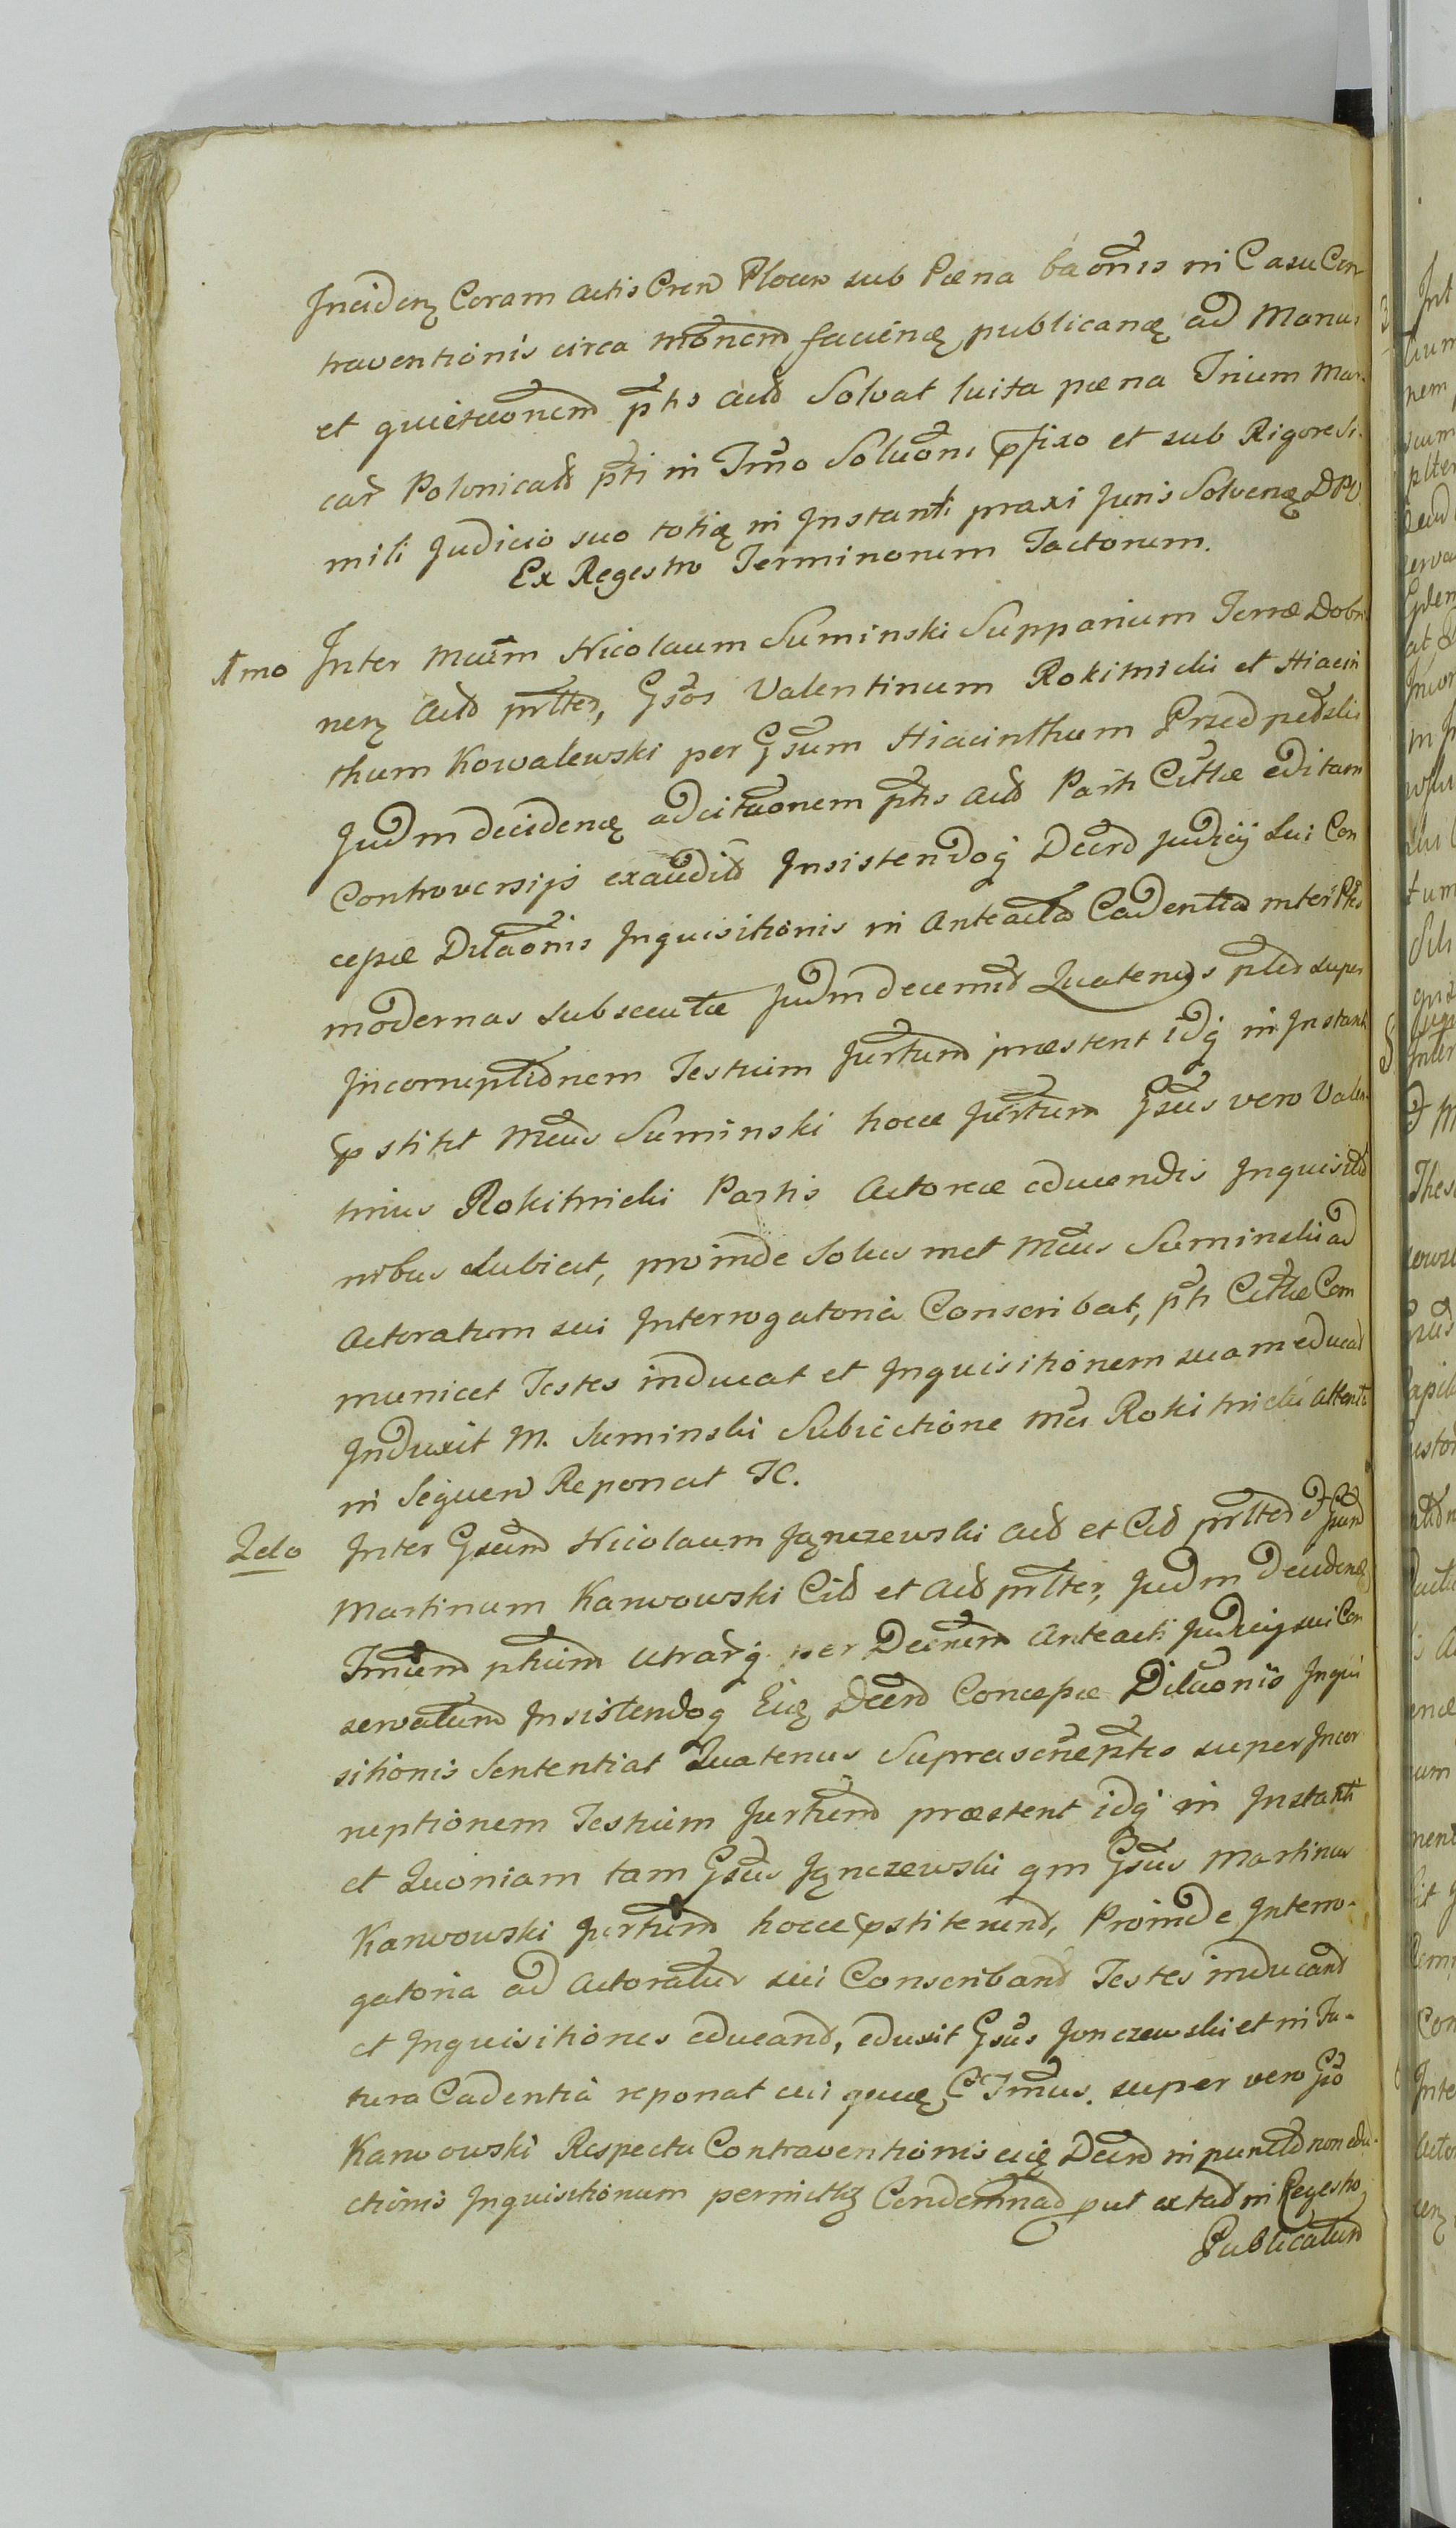 Incidenȝ Coram actis Cren Plocen sub Pœna baonis in Casu Con
traventionis circa monem facienę publicanę ad Manus
et quietaonem ptis actȣ Solvat luita pœna Trium Mar-
car Polonicalȣ pti in Tmo Soluoni pfixo et sub Rigore Si-
mili Judicio suo totię in Instanti praxi Juris Solvenę DPU
Ex Regestro Terminorum Tactorum.
1mo Inter Mcum Nicolaum Suminski Supparium Terræ Dobri
nenȝ Actȣ prltes, Gsos Valentinum Rokitnicki et Hiacin
thum Kowalewski per Gsum Hiacinthum Przedpełski
Judm decidenę adcitaonem ptis actȣ Parti Cittæ editam
Controversijs exauditȣ Insistendoq Decrd Judicij sui Con
cepsæ Dilaonis Inquisitionis in Anteacta Cadentia inter Ptes
modernas subsecutæ Judm decernit Quatenus ptes super
Incorruptionem Testium Jurtum præstent idq in Instanti
pstitit Mcus Suminski hocce Jurtum Gsus vero Valen-
tinus Rokitnicki Partis Actoreæ educendis Inquisitio
nibus Subicit, proinde Solus met Mcus Suminski ad
Actoratum sui Interrogatoria Conscribat, pti Cittæ Com
municet Testes inducat et Inquisitionem suam educat
Induxit M. Suminski Subiectione Mci Rokitnicki attenta
in Sequen Reponat TC.
2do Inter Gsum Nicolaum Jączewski Actȣ et Citȣ prltes et Gsum
Martinum Karwowski Citȣ et Actȣ prlter, Judm Decidenę
Tmum ptium Utrarq per Decrum Anteacti Judicij sui Con
servatum Insistendoq Eię Decrd Concepsæ Dilaonis Inqui
sitionis Sententiat Quatenus Suprascrieptes super Incor
ruptionem Testium Jurtum præstent idq in Instanti
et Quoniam tam Gsus Jączewski qm Gsus Martinus
Karwowski Jurtum hocce pstiterund, Proinde Interro-
gatoria ad Actoratus sui Conscriband Testes inducand
et Inquisitiones educand, eduxit Gsus Jonczewski et in Fu-
tura Cadentia reponat cui quię C Tmus. super vero Gso
Karwowski Respectu Contraventionis eię Decrd in puncto non edu-
ctionis Inquisitionum permittȝ Condemnad put extad in Regestro
Publicatum